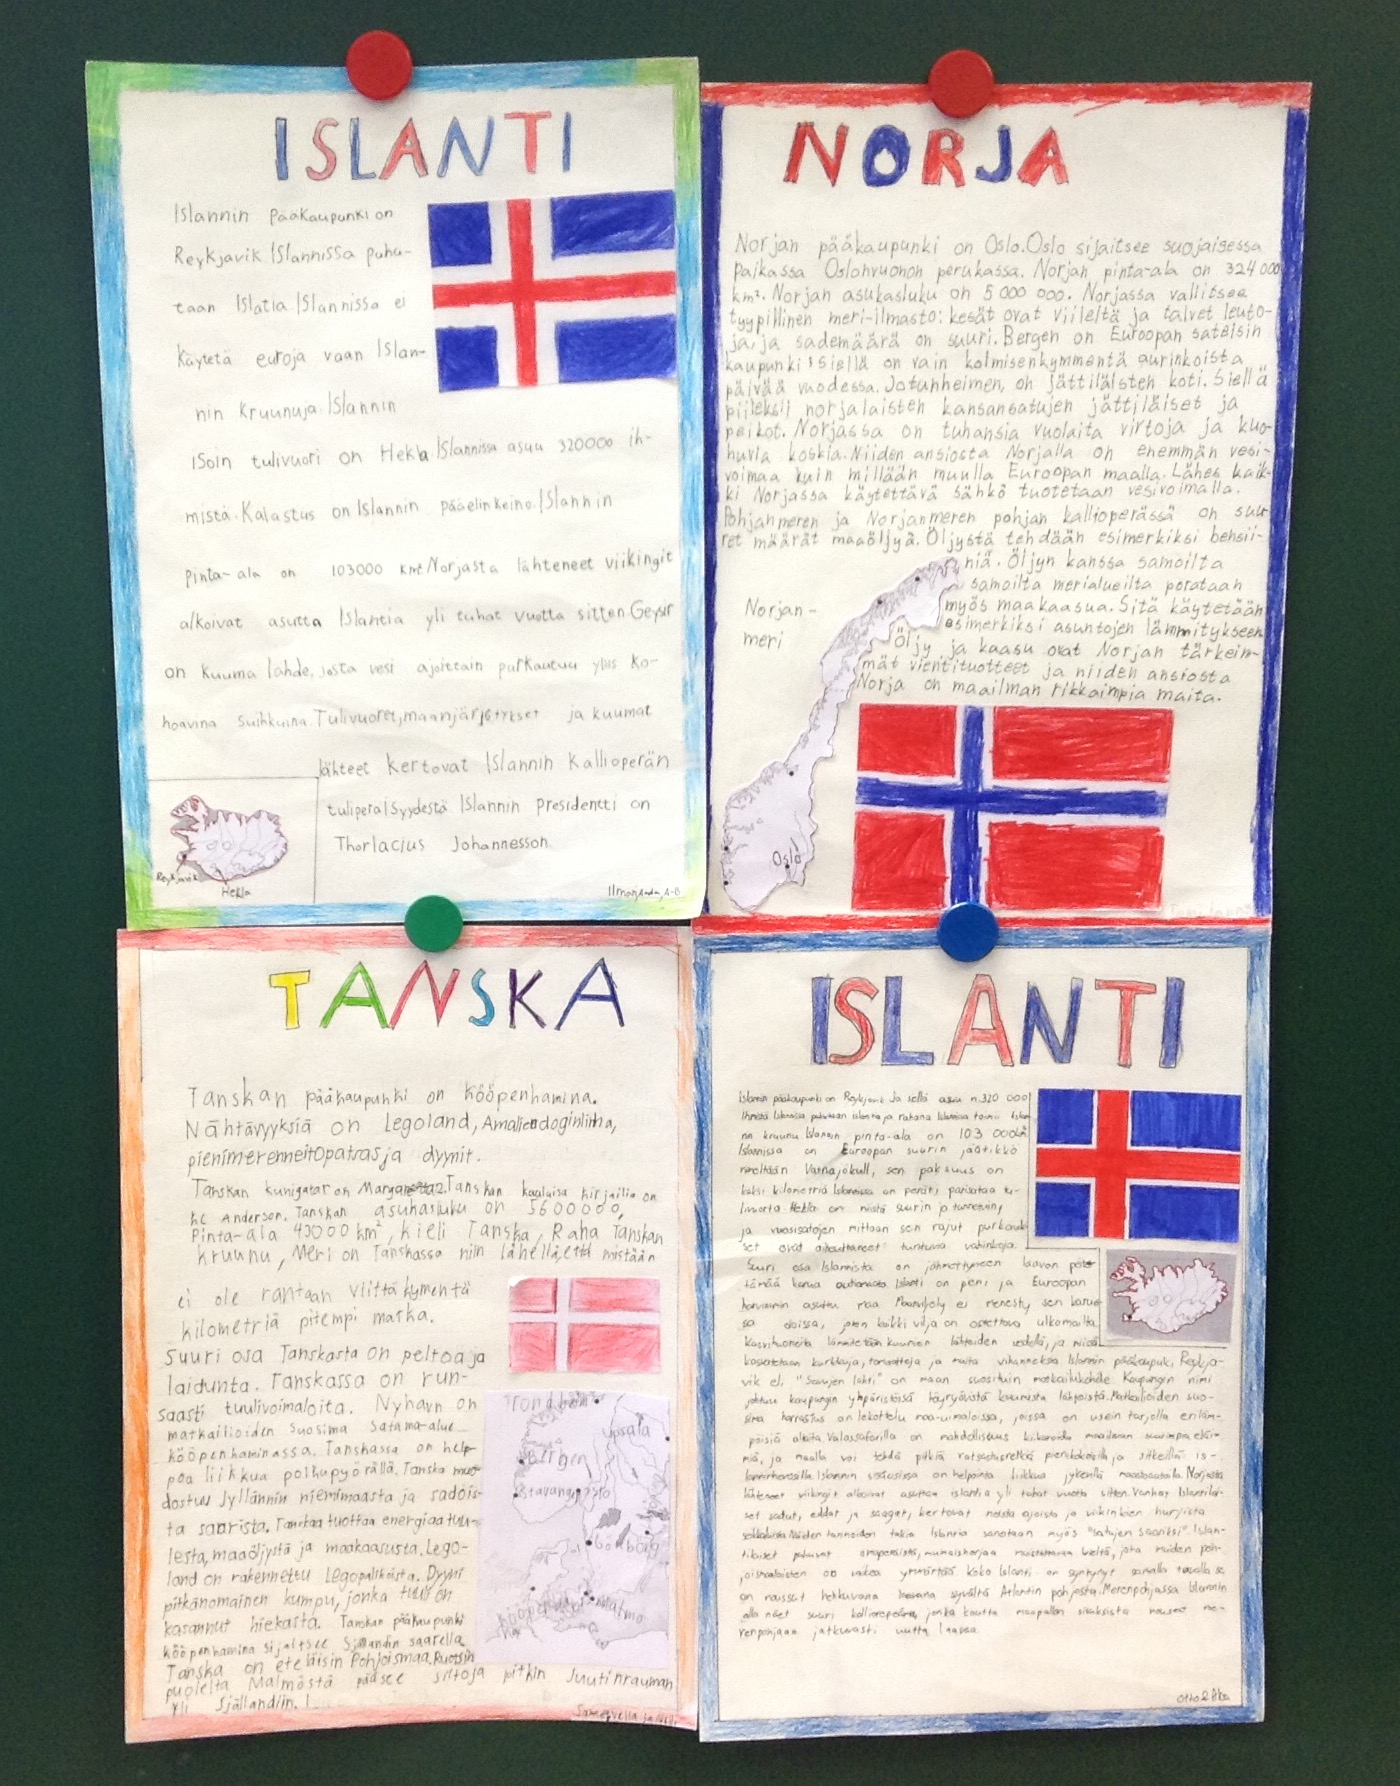 ISLANTI
Islannin pääkaupunki on
Reykjavik Islannissa puhu-
taan Islatia. Islannissa ei
käytetä euroja vaan Islan-
nin kruunuja. Islannin
isoin tulivuori on Hekla Islannissa asuu 320000 ih-
mistä. Kalastus on Islannin pääelinkeino. Islannin
pinta-ala on 103000 km². Norjasta lähteneet viikingit
alkoivat asutta Islantia yli tuhat vuotta sitten. Geysir
on kuuma lähde, josta vesi ajoittain purkautuu ylös ko-
hoavina suihkuina. Tulivuoret, maanjärjstykset ja kuumat
lähteet kertovat Islannin kallioperän
tuliperäisyydestä Islannin presidentti on
Thorlacius Johannesson.
Reykjavik
Hekla
NORJA
Norjan pääkaupunki on Oslo. Oslo sijaitsee suojaisessa
paikassa Oslonvuonon perukassa. Norjan pinta-ala on 324 000
km². Norjan asukasluku on 5 000 000. Norjassa vallitsee
tyypillinen meri-ilmasto: kesät ovat viileitä ja talvet leuto-
ja, ja sademäärä on suuri. Bergen on Euroopan sateisin
kaupunki: siellä on vain kolmisenkymmentä aurinkoista
päivää vuodessa. Jotunheimen, on jättiläisten koti. Siellä
piileksii norjalaisten kansansatujen jättiläiset ja
peikot. Norjassa on tuhansia vuolaita virtoja ja kuo-
huvia koskia. Niiden ansiosta Norjalla on enemmän vesi-
voimaa kuin millään muulla Euroopan maalla. Lähes kaik-
ki Norjassa käytettävä sähkö tuotetaan vesivoimalla.
Pohjanmeren ja Norjanmeren pohjan kallioperässä on suu-
ret määrät maaöljyä. Öljystä tehdään esimerkiksi bensii-
niä. Öljyn kanssa samoilta
samoilta merialueilta porataan
myös maakaasua. Sitä käytetään
esimerkiksi asuntojen lämmitykseen
Öljy ja kaasu ovat Norjan tärkeim-
mät vientituotteet ja niiden ansiosta
Norja on maailman rikkaimpia maita.
Norjan-
meri
Oslo
TANSKA
Tanskan pääkaupunki on kööpenhamina.
Nähtävyyksiä on Legoland, Amalienboginlinna,
pienimerenneitopatsas ja dyynit.
Tanskan kunigatar on Margareta 2. Tanskan kuuluisa kirjailia on
hc Anderson. Tanskan asukasluku on 5600000,
Pinta-ala 43000 km², kieli Tanska, Raha Tanskan
kruunu, Meri on Tanskassa niin lähellä, että mistään
ei ole rantaan viittäkymentä
kilometriä pitempi matka.
Suuri osa Tanskasta on peltoa ja
laidunta. Tanskassa on run-
saasti tuulivoimaloita. Nyhavn on
matkailioiden suosima satama-alue
kööpenhaminassa. Tanskassa on help-
poa liikkua polkupyörällä. Tanska muo-
dostuu Jyllännin niemimaasta ja sadois-
ta saarista. Tanskaa tuottaa energiaa tuu-
lesta, maaöljystä ja maakaasusta. Lego-
land on rakennettu Legopalikoista. Dyyni
pitkänomainen kumpu, jonka tuuli on
kasannut hiekasta. Tanskan pääkaupunki
kööpenhamina sijaitsee Själlandin saarella
Tanska on eteläisin Pohjoismaa. Ruotsin
puolelta Malmöstä pääsee siltoja pitkin Juutinrauman
yli Själlandiin.
Trondheim
Uppsala
Bergen
Stavanger
Oslo
Göteborg
Kööpenhamina
Malmö
ISLANTI
Islannin pääkaupunki on Reykjavik Ja siellä asuu n.320 000
ihmistä Islannissa puhutaan islantia ja rahana Islannissa toimii Islan
nin kruunu Islannin pinta-ala on 103 000km
Islannissa on Euroopan suurin jäätikkö
nimeltään Vatnajökull, sen paksuus on
kaksi kilometriä Islannissa on peräti parisataa tu-
livuorta Hekla on niistä suurin ja tunnetuin,
ja vuosisatojen mittaan sen rajut purkauk-
set ovat aiheuttaneet tuntuvia vahinkoja.
Suuri osa Islannista on jähmettyneen laavan peit-
tämää karua autiomaata Islanti on pieni ja Euroopan
harvimmin asuttu maa Maanviljely ei menesty sen karuis
sa oloissa, joten kaikki vilja on ostettava ulkomailta
Kasvihuoneita lämmitetään kuumien lähteiden vedellä, ja niissä
kasvatetaan kurkkuja, tomaatteja ja muita vihanneksia Islannin pääkaupunki, Reykja-
vik eli "Savujen lahti" on maan suosituin matkailukohde Kaupungin nimi
johtuu kaupungin ympäristössä höyryävistä kuumista lähteistä. Matkailioiden suo-
sima harrastus on lekottelu maa-uimaloissa, joissa on usein tarjolla eriläm-
pöisiä altaita. Valassafarilla on mahdollisuus kiikaroida maailman suurimpia eläi-
miä, ja maalla voi tehdä pitkiä ratsastusretkiä pienikokoisilla ja sitkeillä is-
lanninhevosilla. Islannin sisäosissa on helpointa liikkua jykevillä maastoautoilla. Norjasta
lähteneet viikingit alkoivat asuttaa islantia yli tuhat vuotta sitten. Vanhoy Islantilai-
set sadut, eddat ja saagat, kertovat noista ajoista ja viikinkien hurjista
seikkailuista Näiden tarinoiden takia Islantia sanotaan myös "satujen saareksi". Islan-
tilaiset puhuvat omaperäistä, muinaisnorjaa muistuttavaa kieltä, jota muiden poh-
joismaalaisten on vaikea ymmärtää koko Islanti on syntynyt samalla tavalla se
on noussut hehkuvana massana syvältä Atlantin pohjasta. Merenpohjassa Islannin
alla näet suuri kalliorepeämä, jonka kautta maapallon sisuksista nousee me-
renpohjaan jatkuvasti uutta laavaa.